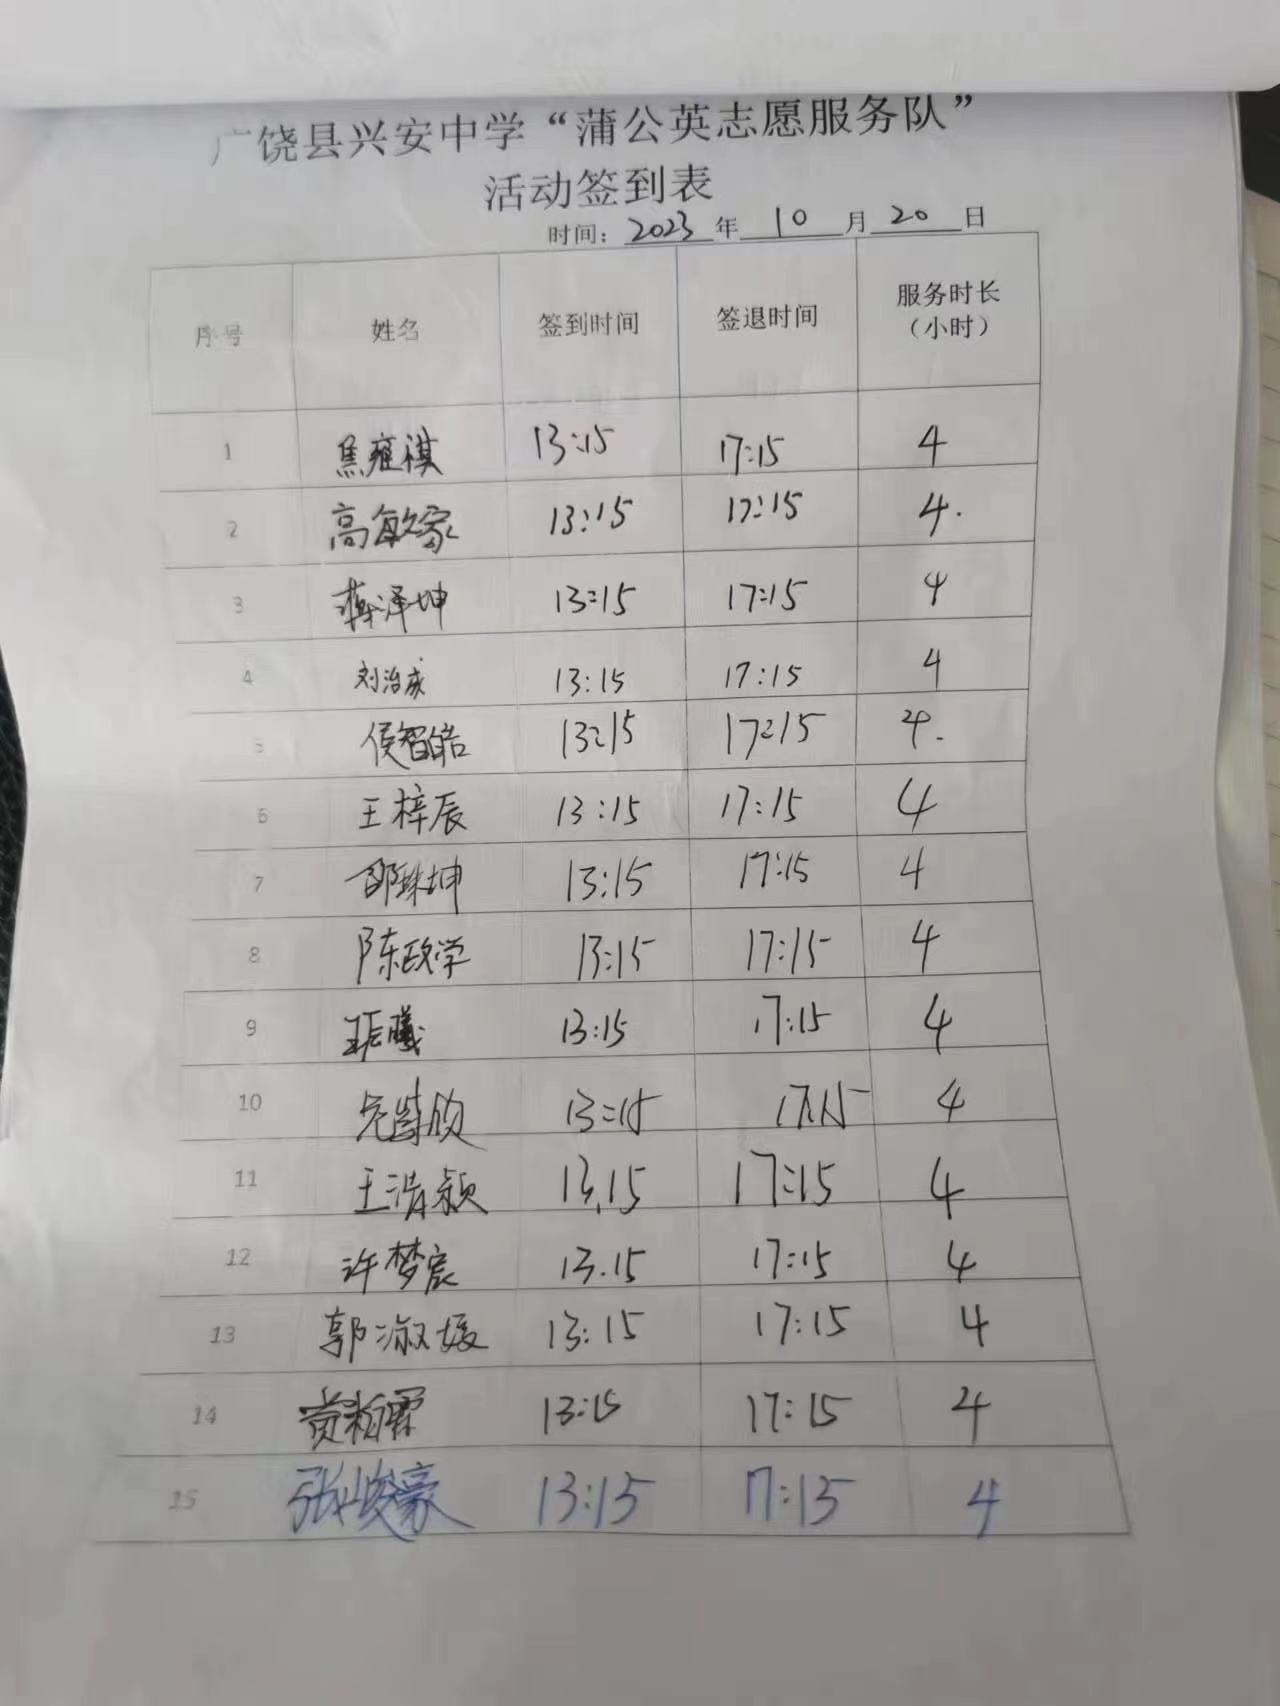 广饶县兴安中学“蒲公英志愿服务队”
活动签到表
时间：2023年10月20日
序号 姓名 签到时间 签退时间 服务时长（小时）
1 焦雍祺 13:15 17:15 4
2 高敏家 13:15 17:15 4.
3 蒋泽坤 13:15 17:15 4
4 刘治成 13:15 17:15 4
5 侯智皓 13:15 17:15 4.
6 王梓辰 13:15 17:15 4
7 邵珠坤 13:15 17:15 4
8 陈政学 13:15 17:15 4
9 13:15 17:15 4
10 13:15 17:15 4
11 王清颖 13.15 17:15 4
12 许梦宸 13.15 17:15 4
13 郭淑媛 13:15 17:15 4
14 黄柏霖 13:15 17:15 4
15 张峻豪 13:15 17:15 4